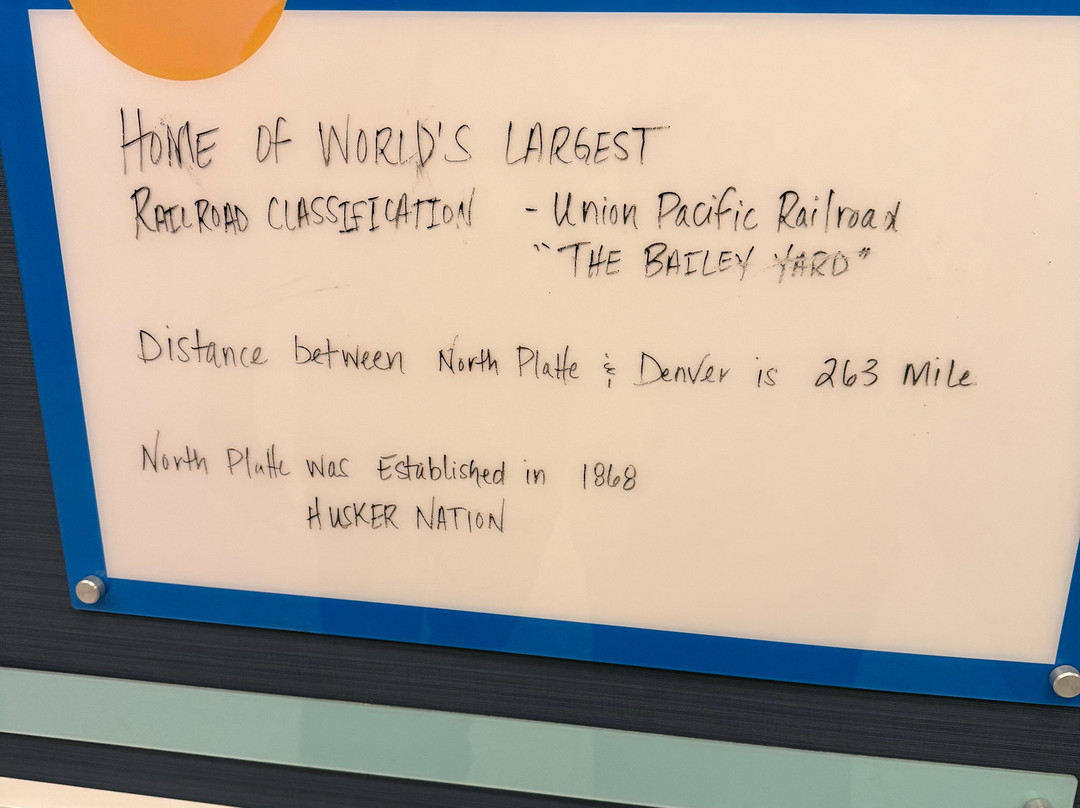 HOME OF WORLD'S LARGEST
RAILROAD CLASSIFICATION - Union Pacific Railroad
"THE BAILEY YARD"
Distance between North Platte & Denver is 263 Mile
North Platte was Established in 1868
HUSKER NATION